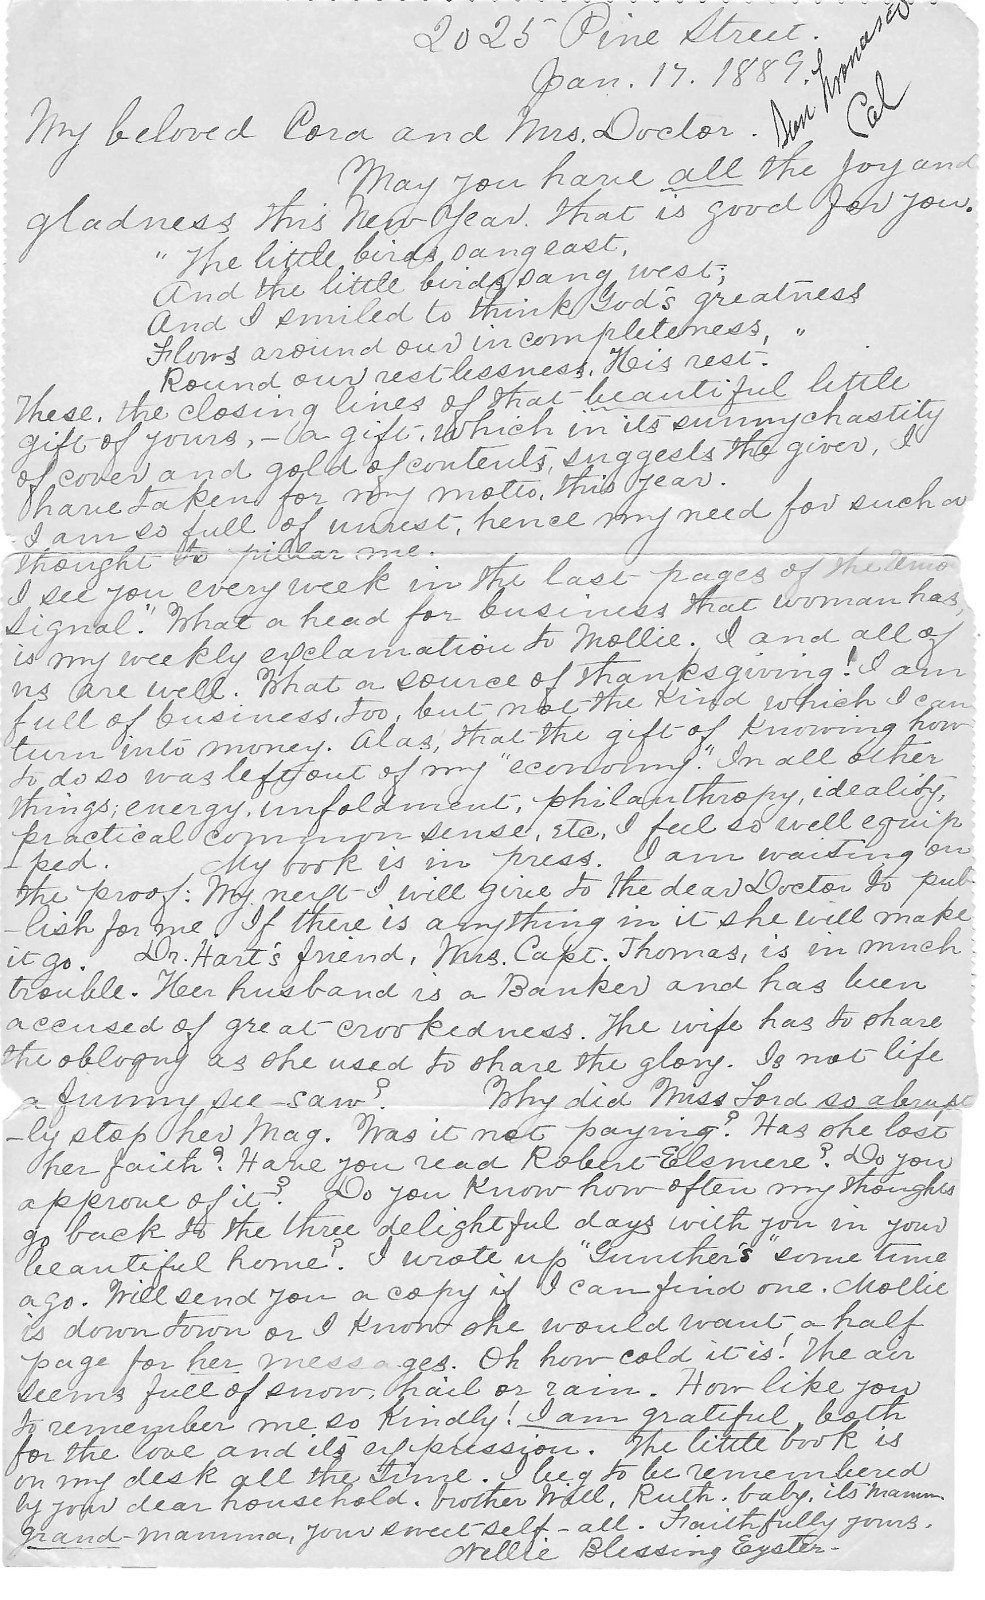 2025 Pine Street.
Jan. 17. 1889.
San Francisco
Cal
My beloved Cora and Mrs. Doctor.
May you have all the joy and
gladness this New Year that is good for you.
"The little birds sang east,
And the little birds sang west;
And I smiled to think God's greatness
Flows around our incompleteness,"
Round our restlessness, His rest.
These, the closing lines of that beautiful little
gift of yours, - a gift, which in its sunny chastity
of cover and gold of contents, suggests the giver, I
have taken for my motto, this year.
I am so full of unrest, hence my need for such a
thought to pillar me.
I see you every week in the last pages of the
Signal." "What a head for business that woman has,
is my weekly exclamation to Mollie. I and all of
us are well. What a source of thanksgiving! I am
full of business, too, but not the kind which I can
turn into money. Alas, that the gift of knowing how
to do so was left out of my "economy." In all other
things; energy, unfoldment, philanthropy, ideality,
practical common sense, etc, I feel so well equip
-ped. My book is in press. I am waiting on
the proof: My next I will give to the dear Doctor to pub
-lish for me. If there is anything in it she will make
it go. Dr. Hart's friend, Mrs. Capt. Thomas, is in much
trouble. Her husband is a Banker and has been
accused of great crookedness. The wife has to share
the obloquy as she used to share the glory. Is not life
a funny see-saw? Why did Miss Ford so abrupt
-ly stop her Mag. Was it not paying? Has she lost
her faith? Have you read Robert Elsmere? Do you
approve of it? Do you know how often my thoughts
go back to the three delightful days with you in your
beautiful home? I wrote up "Gunther's" some time
ago. Will send you a copy if I can find one. Mollie
is down town or I know she would want a half
page for her messages. Oh how cold it is! The air
seems full of snow, hail or rain. How like you
to remember me so kindly! I am grateful, both
for the love and its expression. The little book is
on my desk all the time. I beg to be remembered
by your dear household. brother Will, Ruth. baby, its mamm
grand-mamma, your sweet self - all. Faithfully yours.
Nellie Blessing Eyster.